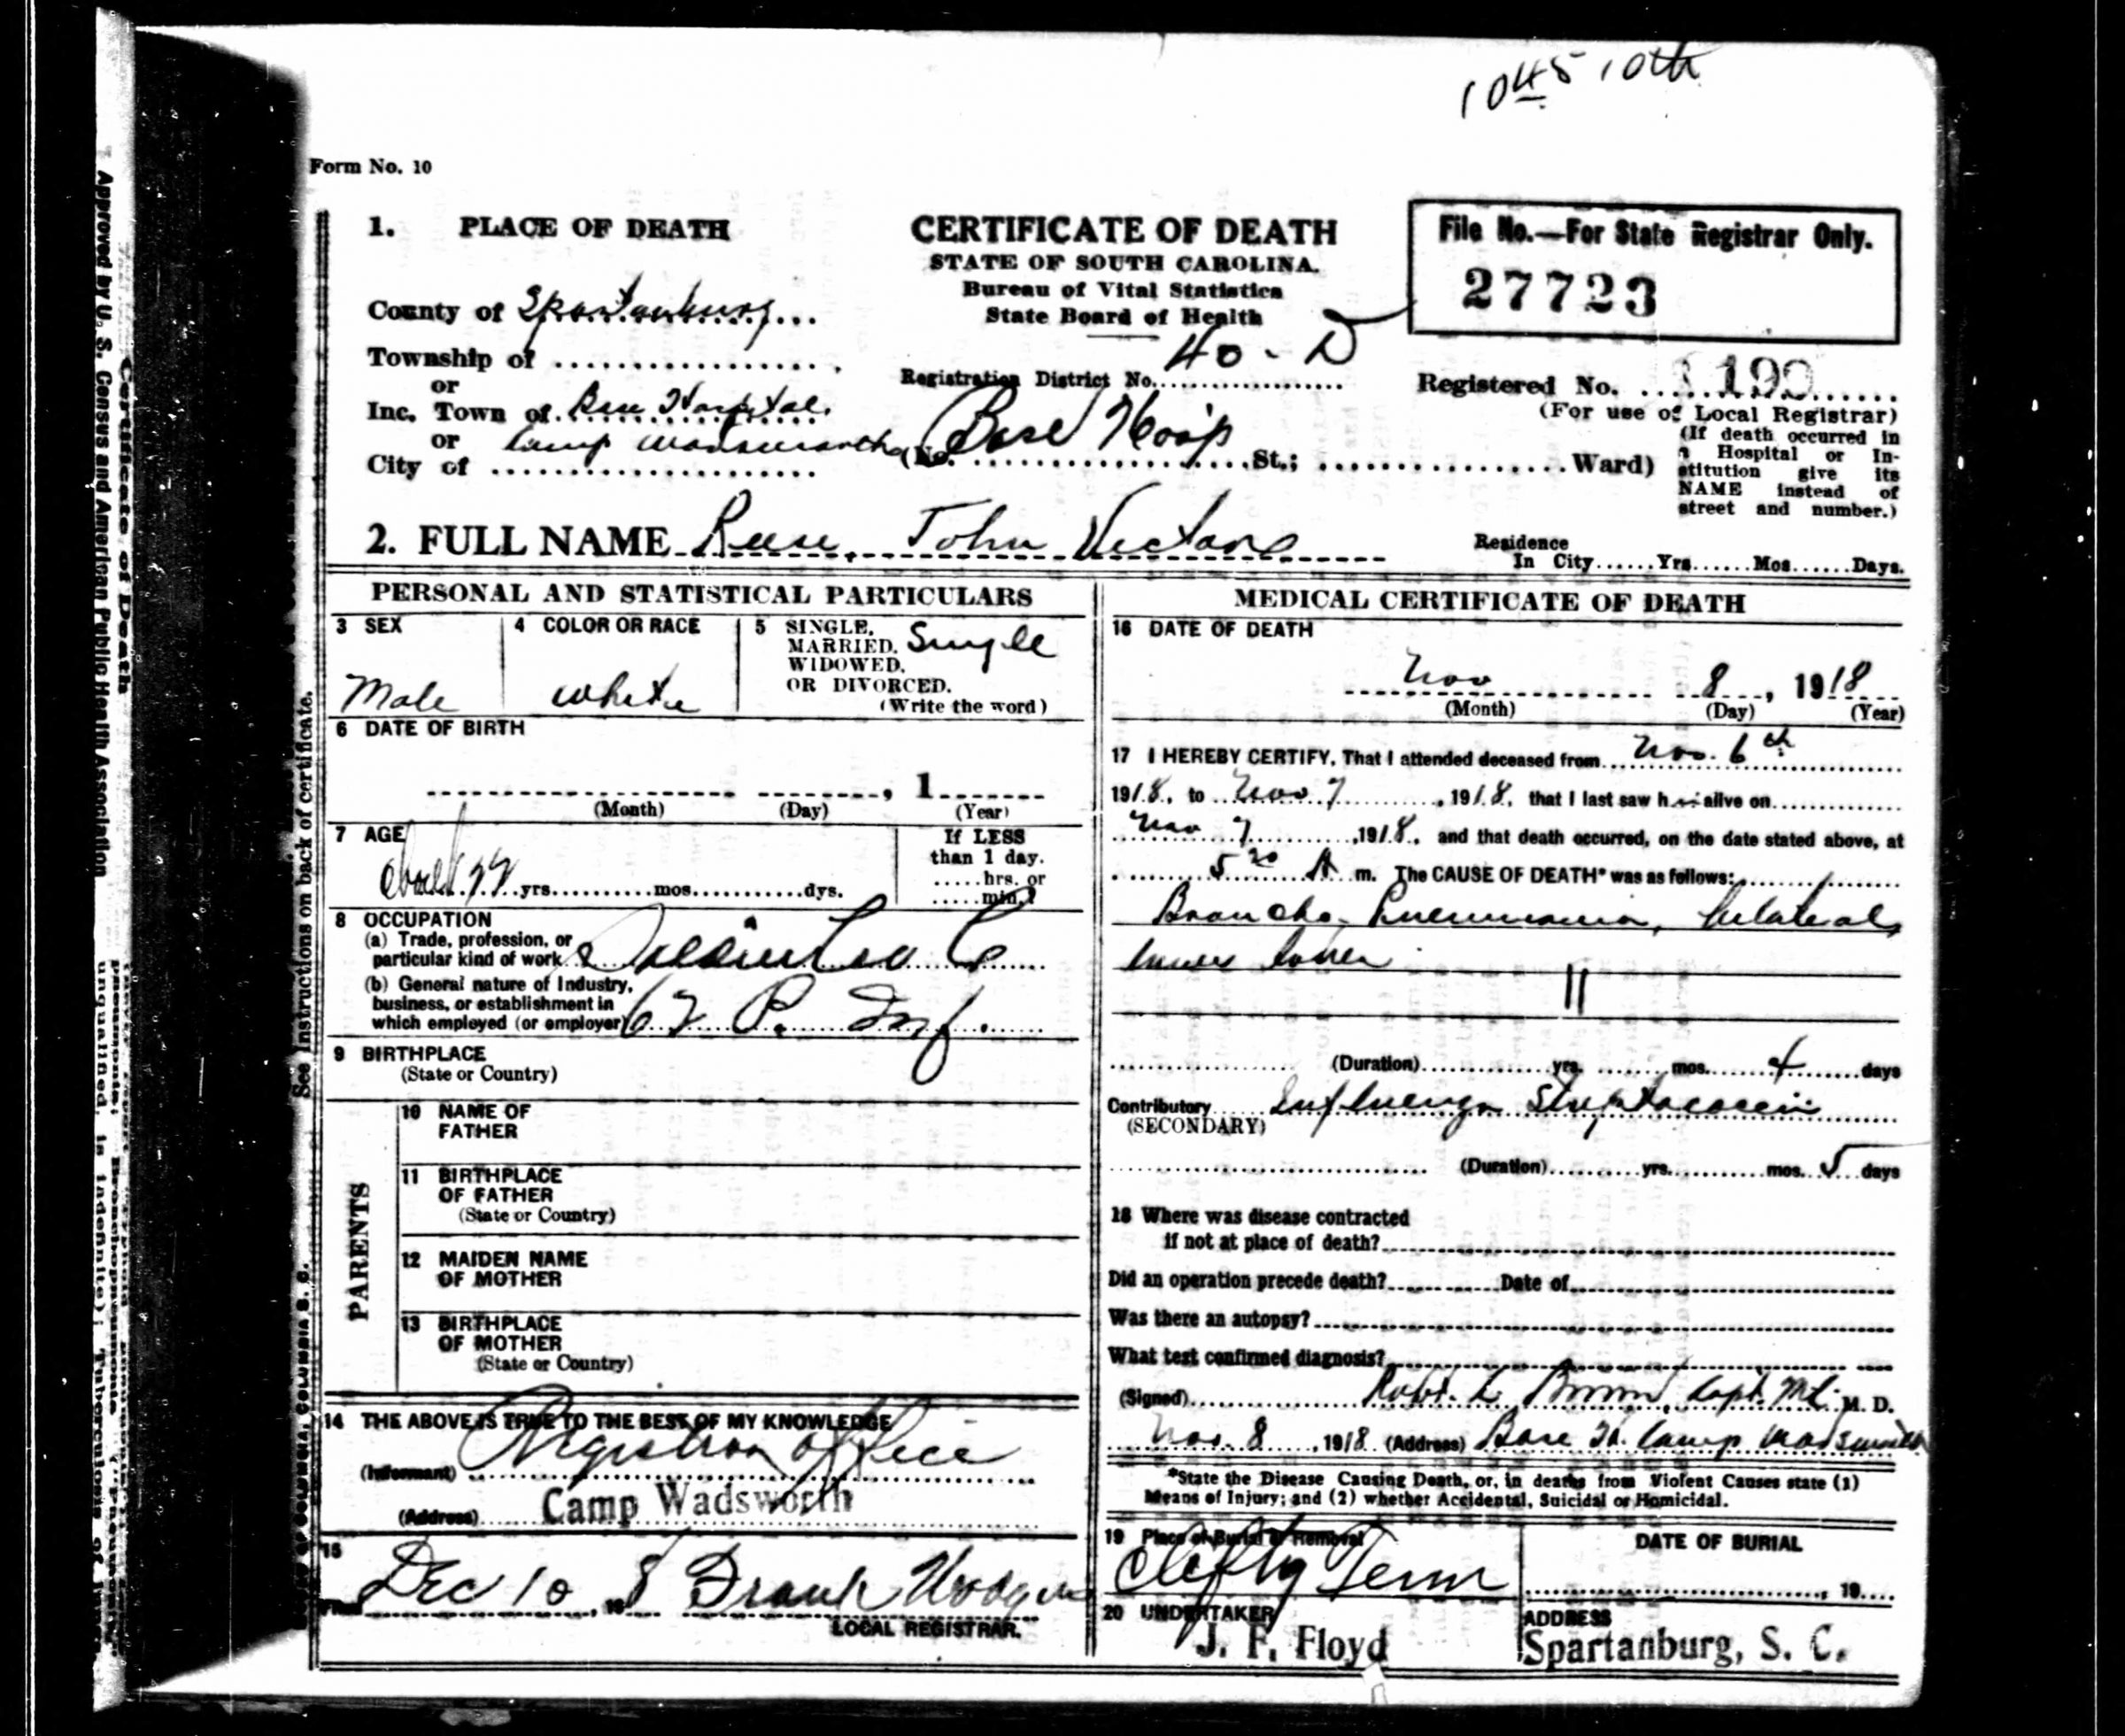 10 45 10th
Form No. 10
1. PLACE OF DEATH
CERTIFICATE OF DEATH
STATE OF SOUTH CAROLINA.
Bureau of Vital Statistics
State Board of Health
File No.—For State Registrar Only.
27723
County of Spartanburg
Township of
or
Inc. Town of Base Hospital
or Camp Wadsworth
City of
Registration District No. 40-D
(No. Base Hosp St.; Ward)
Registered No. 199
(For use of Local Registrar)
(If death occurred in
a Hospital or In-
stitution give its
NAME instead of
street and number.)
2. FULL NAME Reese, John
Residence
In City......Yrs......Mos......Days.
PERSONAL AND STATISTICAL PARTICULARS
3 SEX
Male
4 COLOR OR RACE
White
5 SINGLE, MARRIED, WIDOWED, OR DIVORCED. Single
(Write the word)
6 DATE OF BIRTH
, 1
(Month) (Day) (Year)
7 AGE
about 22 yrs. mos. dys.
If LESS
than 1 day.
hrs. or
min.?
8 OCCUPATION
(a) Trade, profession, or
particular kind of work Soldier Co C
(b) General nature of Industry,
business, or establishment in
which employed (or employer) 62 P. Inf.
9 BIRTHPLACE
(State or Country)
PARENTS
10 NAME OF
FATHER
11 BIRTHPLACE
OF FATHER
(State or Country)
12 MAIDEN NAME
OF MOTHER
13 BIRTHPLACE
OF MOTHER
(State or Country)
14 THE ABOVE IS TRUE TO THE BEST OF MY KNOWLEDGE
(Informant) Registrar office
(Address) Camp Wadsworth
15
Dec 10, 19 8 Frank
LOCAL REGISTRAR.
MEDICAL CERTIFICATE OF DEATH
16 DATE OF DEATH
Nov 8, 1918
(Month) (Day) (Year)
17 I HEREBY CERTIFY, That I attended deceased from Nov. 6th
1918, to Nov 7, 1918, that I last saw him alive on
Nov 7, 1918, and that death occurred, on the date stated above, at
A m. The CAUSE OF DEATH* was as follows:
Broncho-Pneumonia, bilateral,
lower
11
(Duration) yrs. mos. 4 days
Contributory Influenza
(SECONDARY)
(Duration) yrs. mos. 5 days
18 Where was disease contracted
if not at place of death?
Did an operation precede death? Date of
Was there an autopsy?
What test confirmed diagnosis?
(Signed) Robt. L. Brown, Capt. M.C. M. D.
Nov. 8, 1918 (Address) Base H. Camp Wadsworth
*State the Disease Causing Death, or, in deaths from Violent Causes state (1)
Means of Injury; and (2) whether Accidental, Suicidal or Homicidal.
19 Place of Burial or Removal
Tenn
DATE OF BURIAL
, 19
20 UNDERTAKER
J. F. Floyd
ADDRESS
Spartanburg, S. C.
See instructions on back of certificate.
Certificate of Death
Approved by U. S. Census and American Public Health Association